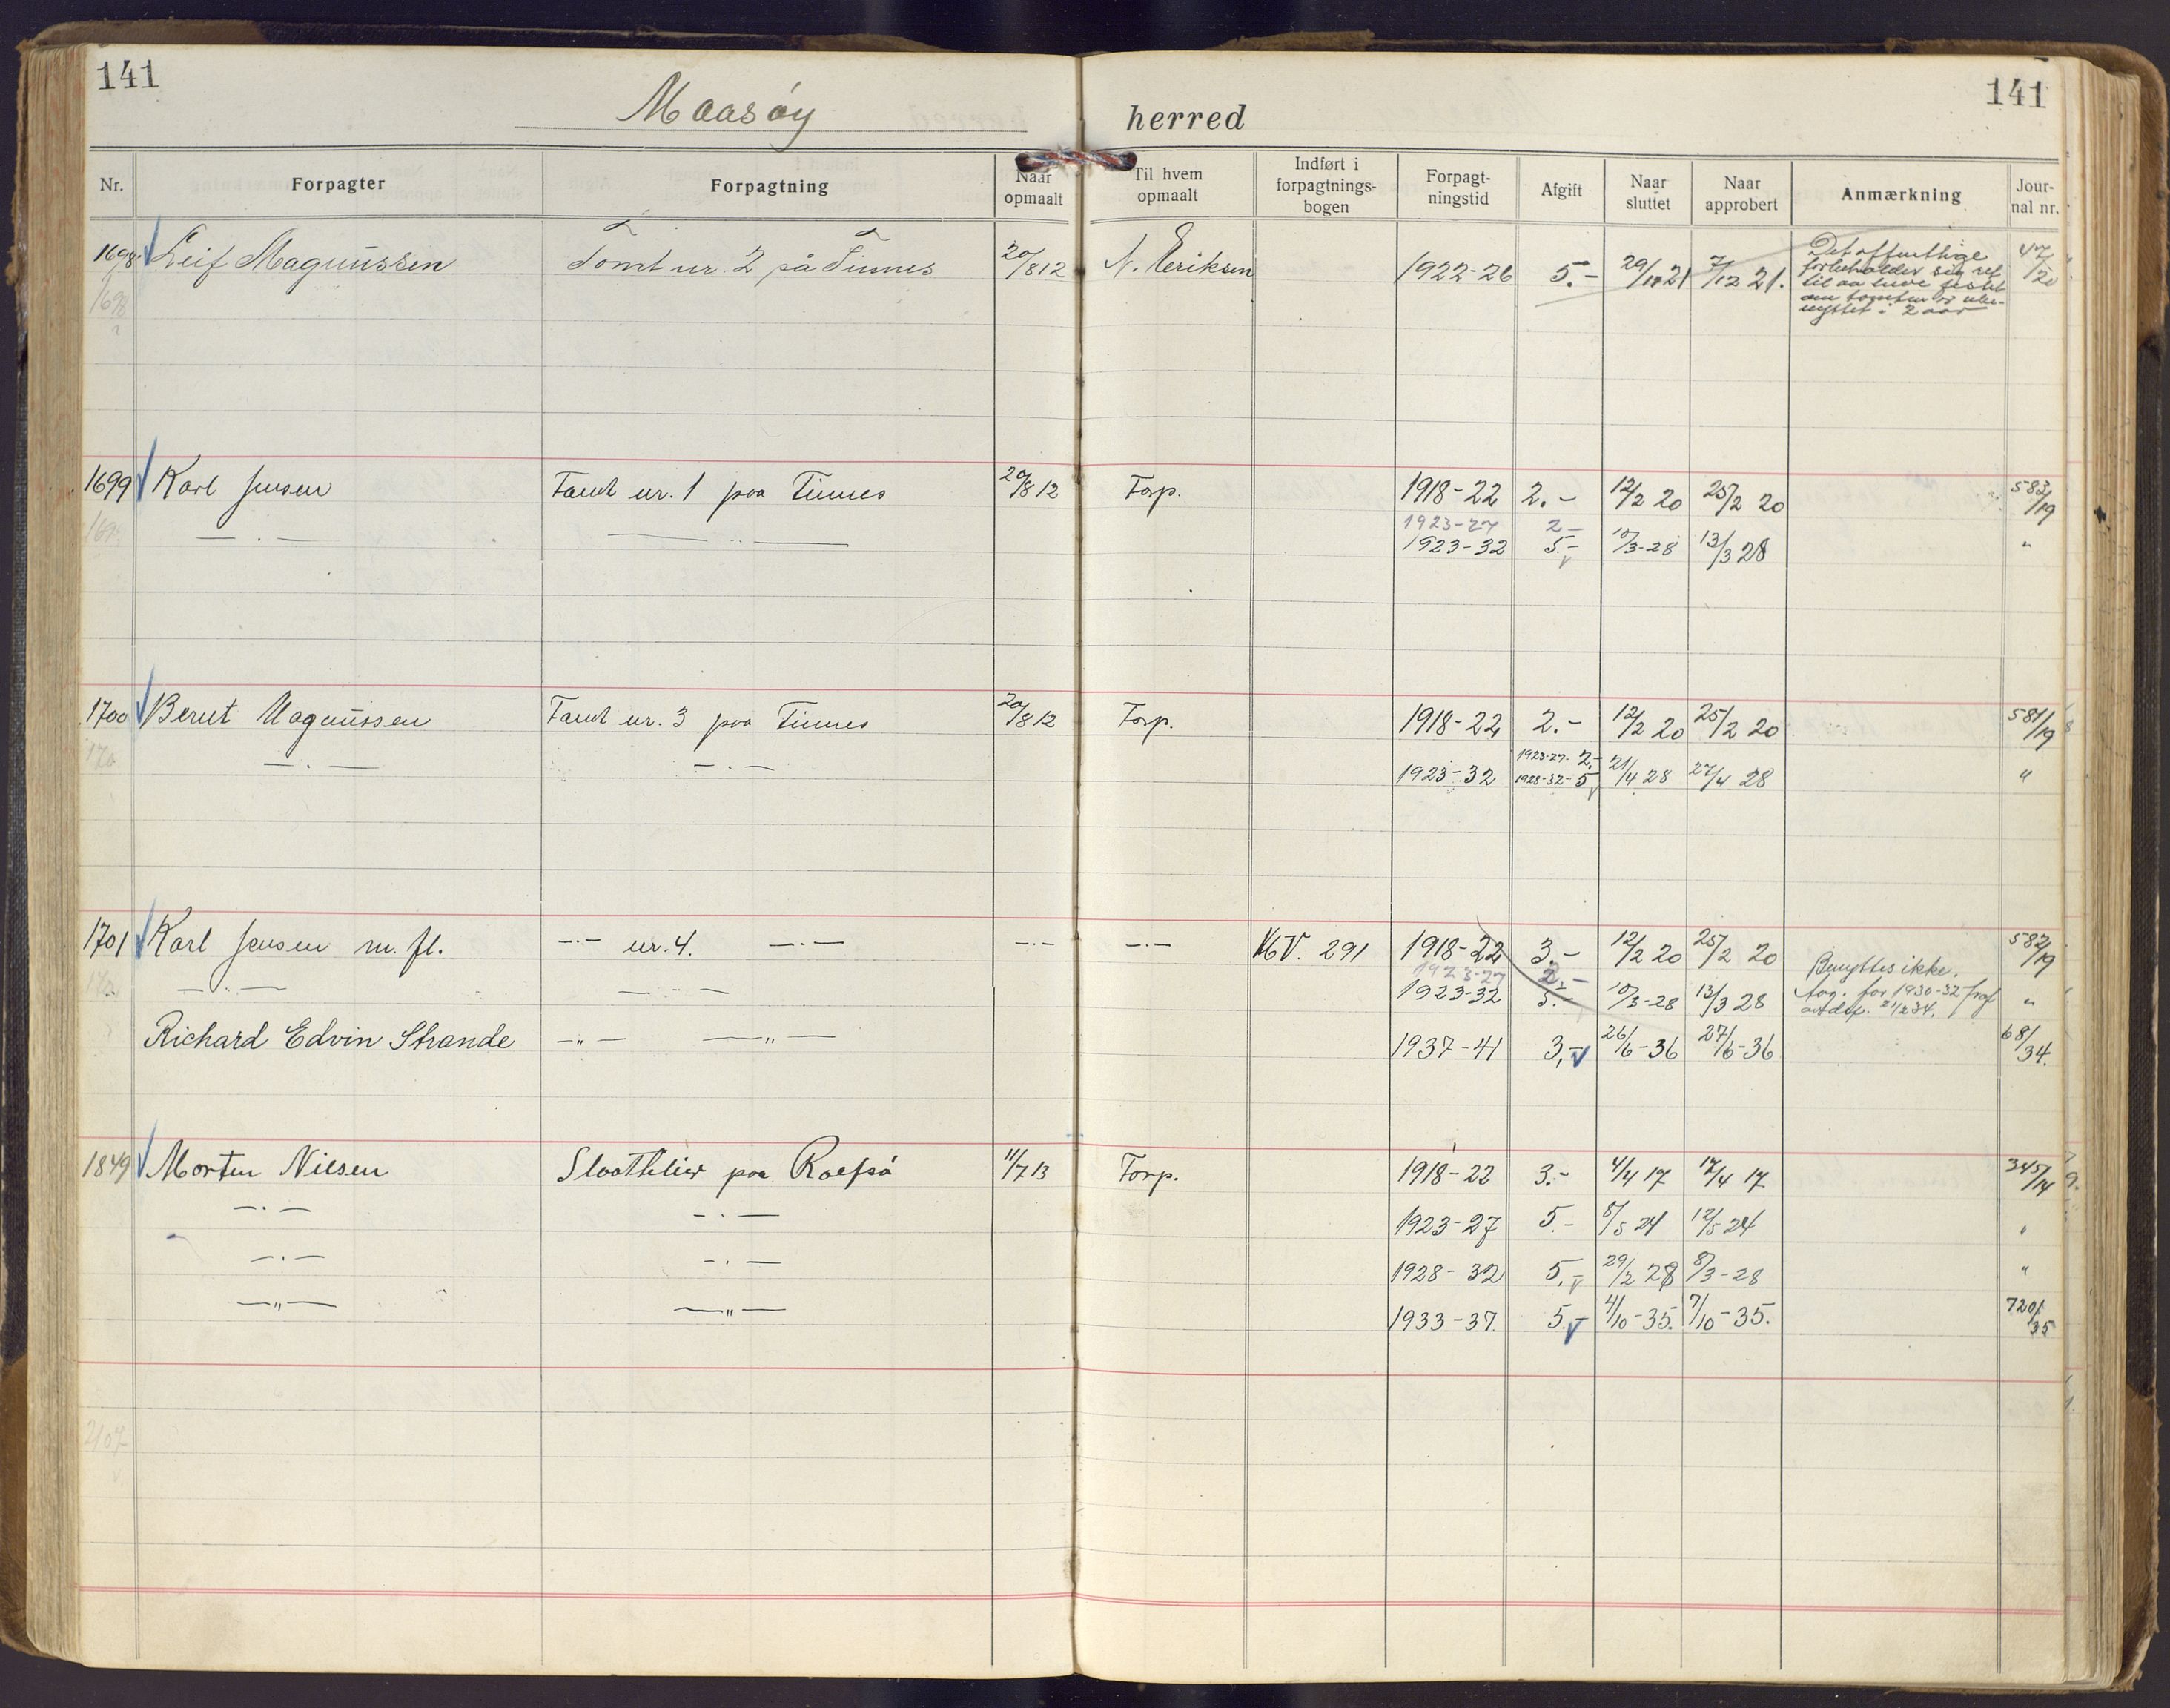 141
141
Maasøy herred
Nr. Forpagter Forpagtning Naar opmaalt Til hvem opmaalt Indført i forpagtnings-bogen Forpagt-ningstid Afgift Naar sluttet Naar approbert Anmærkning Jour-nal nr.
1698 Leif Magnussen Tomt nr. 2 på Finnes 20/8 12 N. Eriksen 1922-26 5.- 29/11 21 7/12 21. Det offentlige 47/20
forbeholder sig ret
til aa heve festet
om tomten er ube-
nyttet i 2 aar
1699 Karl Jensen Tomt nr. 1 paa Finnes 20/8 12 Forp. 1918-22 2.- 12/2 20 25/2 20 583/19
1923-27 2-
—.— —..— 1923-32 5.- 10/3-28 13/3 28 "
1700 Berut Magnussen Tomt nr. 3 paa Finnes 20/8 12 Forp. 1918-22 2.- 12/2 20 25/2 20 581/19
1923-27- 2.-
—.— —.— 1923-32 1928-32-5 21/4 28 27/4 28 "
1701 Karl Jensen m. fl. —.— nr. 4. —.— —.— —.— 291 1918-22 3.- 12/2 20 25/2 20 582/19
1923-27 2- Benyttes ikke.
—.— —.— 1923-32 5.- 10/3-28 13/3 28 for 1930-32 "
21/2 34.
Richard Edvin Strande —"— —"— 1937-41 3,- 26/6-36 27/6-36 68/34.
1849 Morten Nilsen Slaattelier paa Rolfsø 11/7 13 Forp. 1918-22 3.- 4/4 17 17/4 17 345/14
—.— —.— 1923-27 5.- 8/5 24 12/5 24 "
—.— —.— 1928-32 5,- 29/2 28 8/3-28 "
—"— —"— 1933-37. 5.- 4/10-35. 7/10-35. 720/35
2107